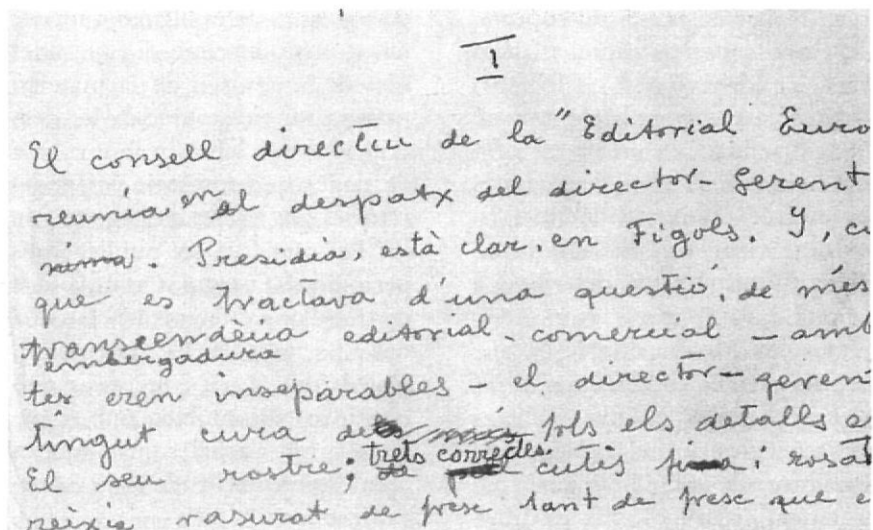 I
El consell directiu de la "Editorial Euro
reunia en el despatx del director-Gerent
Presidia, està clar, en Fígols. Y, cu
que es tractava d'una questió, de més
transcendència editorial-comercial – amb
embergadura
tes eren inseparables – el director-geren
tingut cura de tots els detalls a
trets correctes.
El seu rostre; cutis fi i rosa
reixia rasurat de fresc tant de fresc que e